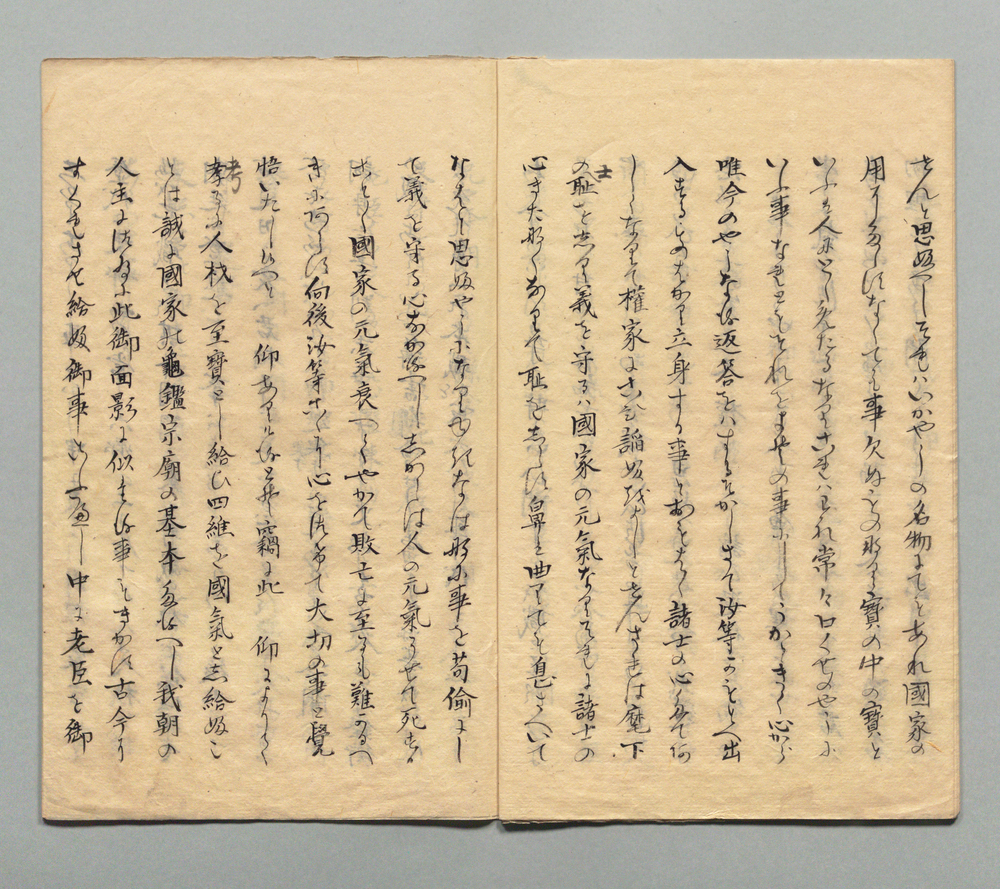 せんと思ふへしそれもいかやうの名物にてもあれ國家の
用にたゝすなくても事欠ぬもの也寶の中の寶と
いふは人にとゝめたるなりこれはわれ常々口くせのやうに
いふ事なれともそれをよその事にしてうか〳〵きく心から
唯今のやうなる返答をはするそかしさて汝等かもとへ出
入するものはかり立身する事とあらは諸士の心みな何
しなりて權家にこひ諂ふをよしとせんされは麾下
の士恥をしり義を守るは國家の元氣なりそれに諸士の
心きたなくなりて恥をしらす鼻は曲りても息さへいて
なはと思ふやうになりもてゆかは何事を苟偸にし
て義を守る心なかるへししからは人の元氣うせて死する
ことく國家の元氣衰へてやかて敗亡に至るも難かるへ
きにあらす向後汝等こゝに心を付て大切の事と覺
悟いたし候へと 仰ありけるとそ竊に此 仰によりて
考るに人材を至寶とし給ひ四維を國氣とし給ふこ
とは誠に國家の龜鑑宗廟の基本なるへし我朝の
人主にはつゐに此御面影に似たる事もきかす古今に
すくれさせ給ふ御事なるへし中に老臣を御